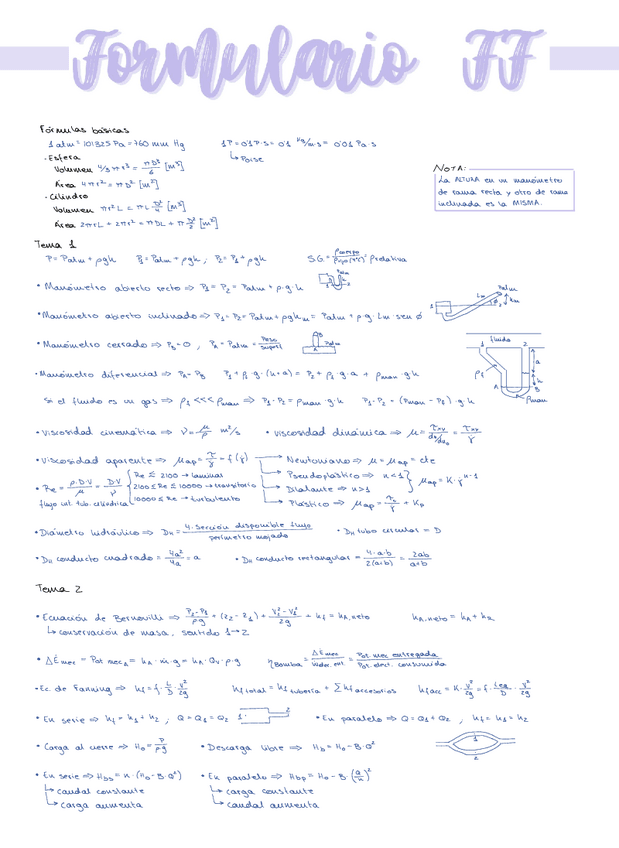 Formulario FF
Fórmulas básicas
1 atm = 101325 Pa = 760 mm Hg
1P = 0'1 P·s = 0'1 kg/m·s = 0'01 Pa·s
↳ Poise
· Esfera
Volumen 4/3 πr³ = πD³/6 [m³]
Área 4πr² = πD² [m²]
· Cilindro
Volumen πr²L = πL D²/4 [m³]
Área 2πrL + 2πr² = πDL + π D²/2 [m²]
NOTA:
La ALTURA en un manómetro
de rama recta y otro de rama
inclinada es la MISMA.
Tema 1
P = Patm + ρgh P1 = Patm + ρgh, P2 = P1 + ρgh
• Manómetro abierto recto ⇒ P1 = P2 = Patm + ρ·g·h
• Manómetro abierto inclinado ⇒ P1 = P2 = Patm + ρghm = Patm + ρ·g·Lm·sen Ø
• Manómetro cerrado ⇒ PB = 0, PA = Patm = Peso/superf
• Manómetro diferencial ⇒ PA = PB P1 + ρf·g·(h+a) = P2 + ρf·g·a + ρman·g·h
Si el fluido es un gas ⇒ ρf <<< ρman ⇒ P1 - P2 = ρman·g·h P1 - P2 = (ρman - ρf)·g·h
fluido
ρman
• Viscosidad cinemática ⇒ ν = μ/ρ m²/s
• Viscosidad dinámica ⇒
• Viscosidad aparente ⇒ μap = τ/γ̇ = f(γ̇)
→ Newtoniano ⇒ μ = μap = cte
→ Pseudoplástico ⇒ n<1
→ Dilatante ⇒ n>1
μap = K·γ̇ⁿ⁻¹
→ Plástico ⇒ μap = τ0/γ̇ + Kp
• Re = ρ·D·V/μ = D·V/ν
Re ≤ 2100 → laminar
2100 ≤ Re ≤ 10000 → transitorio
10000 ≤ Re → turbulento
flujo int. tub. cilíndrica
• Diámetro hidráulico ⇒ DH = 4·sección disponible flujo/perímetro mojado
• DH tubo circular = D
• DH conducto cuadrado = 4a²/4a = a
• DH conducto rectangular = 4·a·b/2(a+b) = 2ab/a+b
Tema 2
• Ecuación de Bernouilli ⇒ P2-P1/ρg + (z2-z1) + V2²-V1²/2g + hf = hA,neto
hA,neto = hA + hR
↳ conservación de masa, sentido 1→2
• ΔĖmec = Pot mec A = hA·ṁ·g = hA·Qv·ρ·g
ηBomba = = Pot. mec entregada/Pot. elect. consumida
• Ec. de Fanning ⇒ hf = f·L/D·V²/2g
hf total = hf tubería + Σ hf accesorios
hf acc = K·V²/2g = f·Leq/D·V²/2g
• En serie ⇒ hf = h1 + h2, Q = Q1 = Q2
• En paralelo ⇒ Q = Q1 + Q2, hf = h1 = h2
• Carga al cierre ⇒ H0 = P/ρg
• Descarga libre ⇒ Hb = H0 - B·Q²
• En serie ⇒ Hbs = n·(H0 - B·Q²)
↳ caudal constante
↳ carga aumenta
• En paralelo ⇒ Hbp = H0 - B·(Q/n)²
↳ carga constante
↳ caudal aumenta